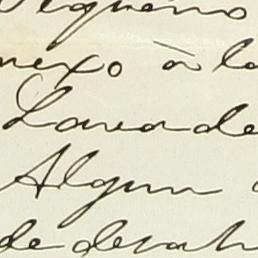 Pequeno
nexo à la
Lavade
Algum
de desab